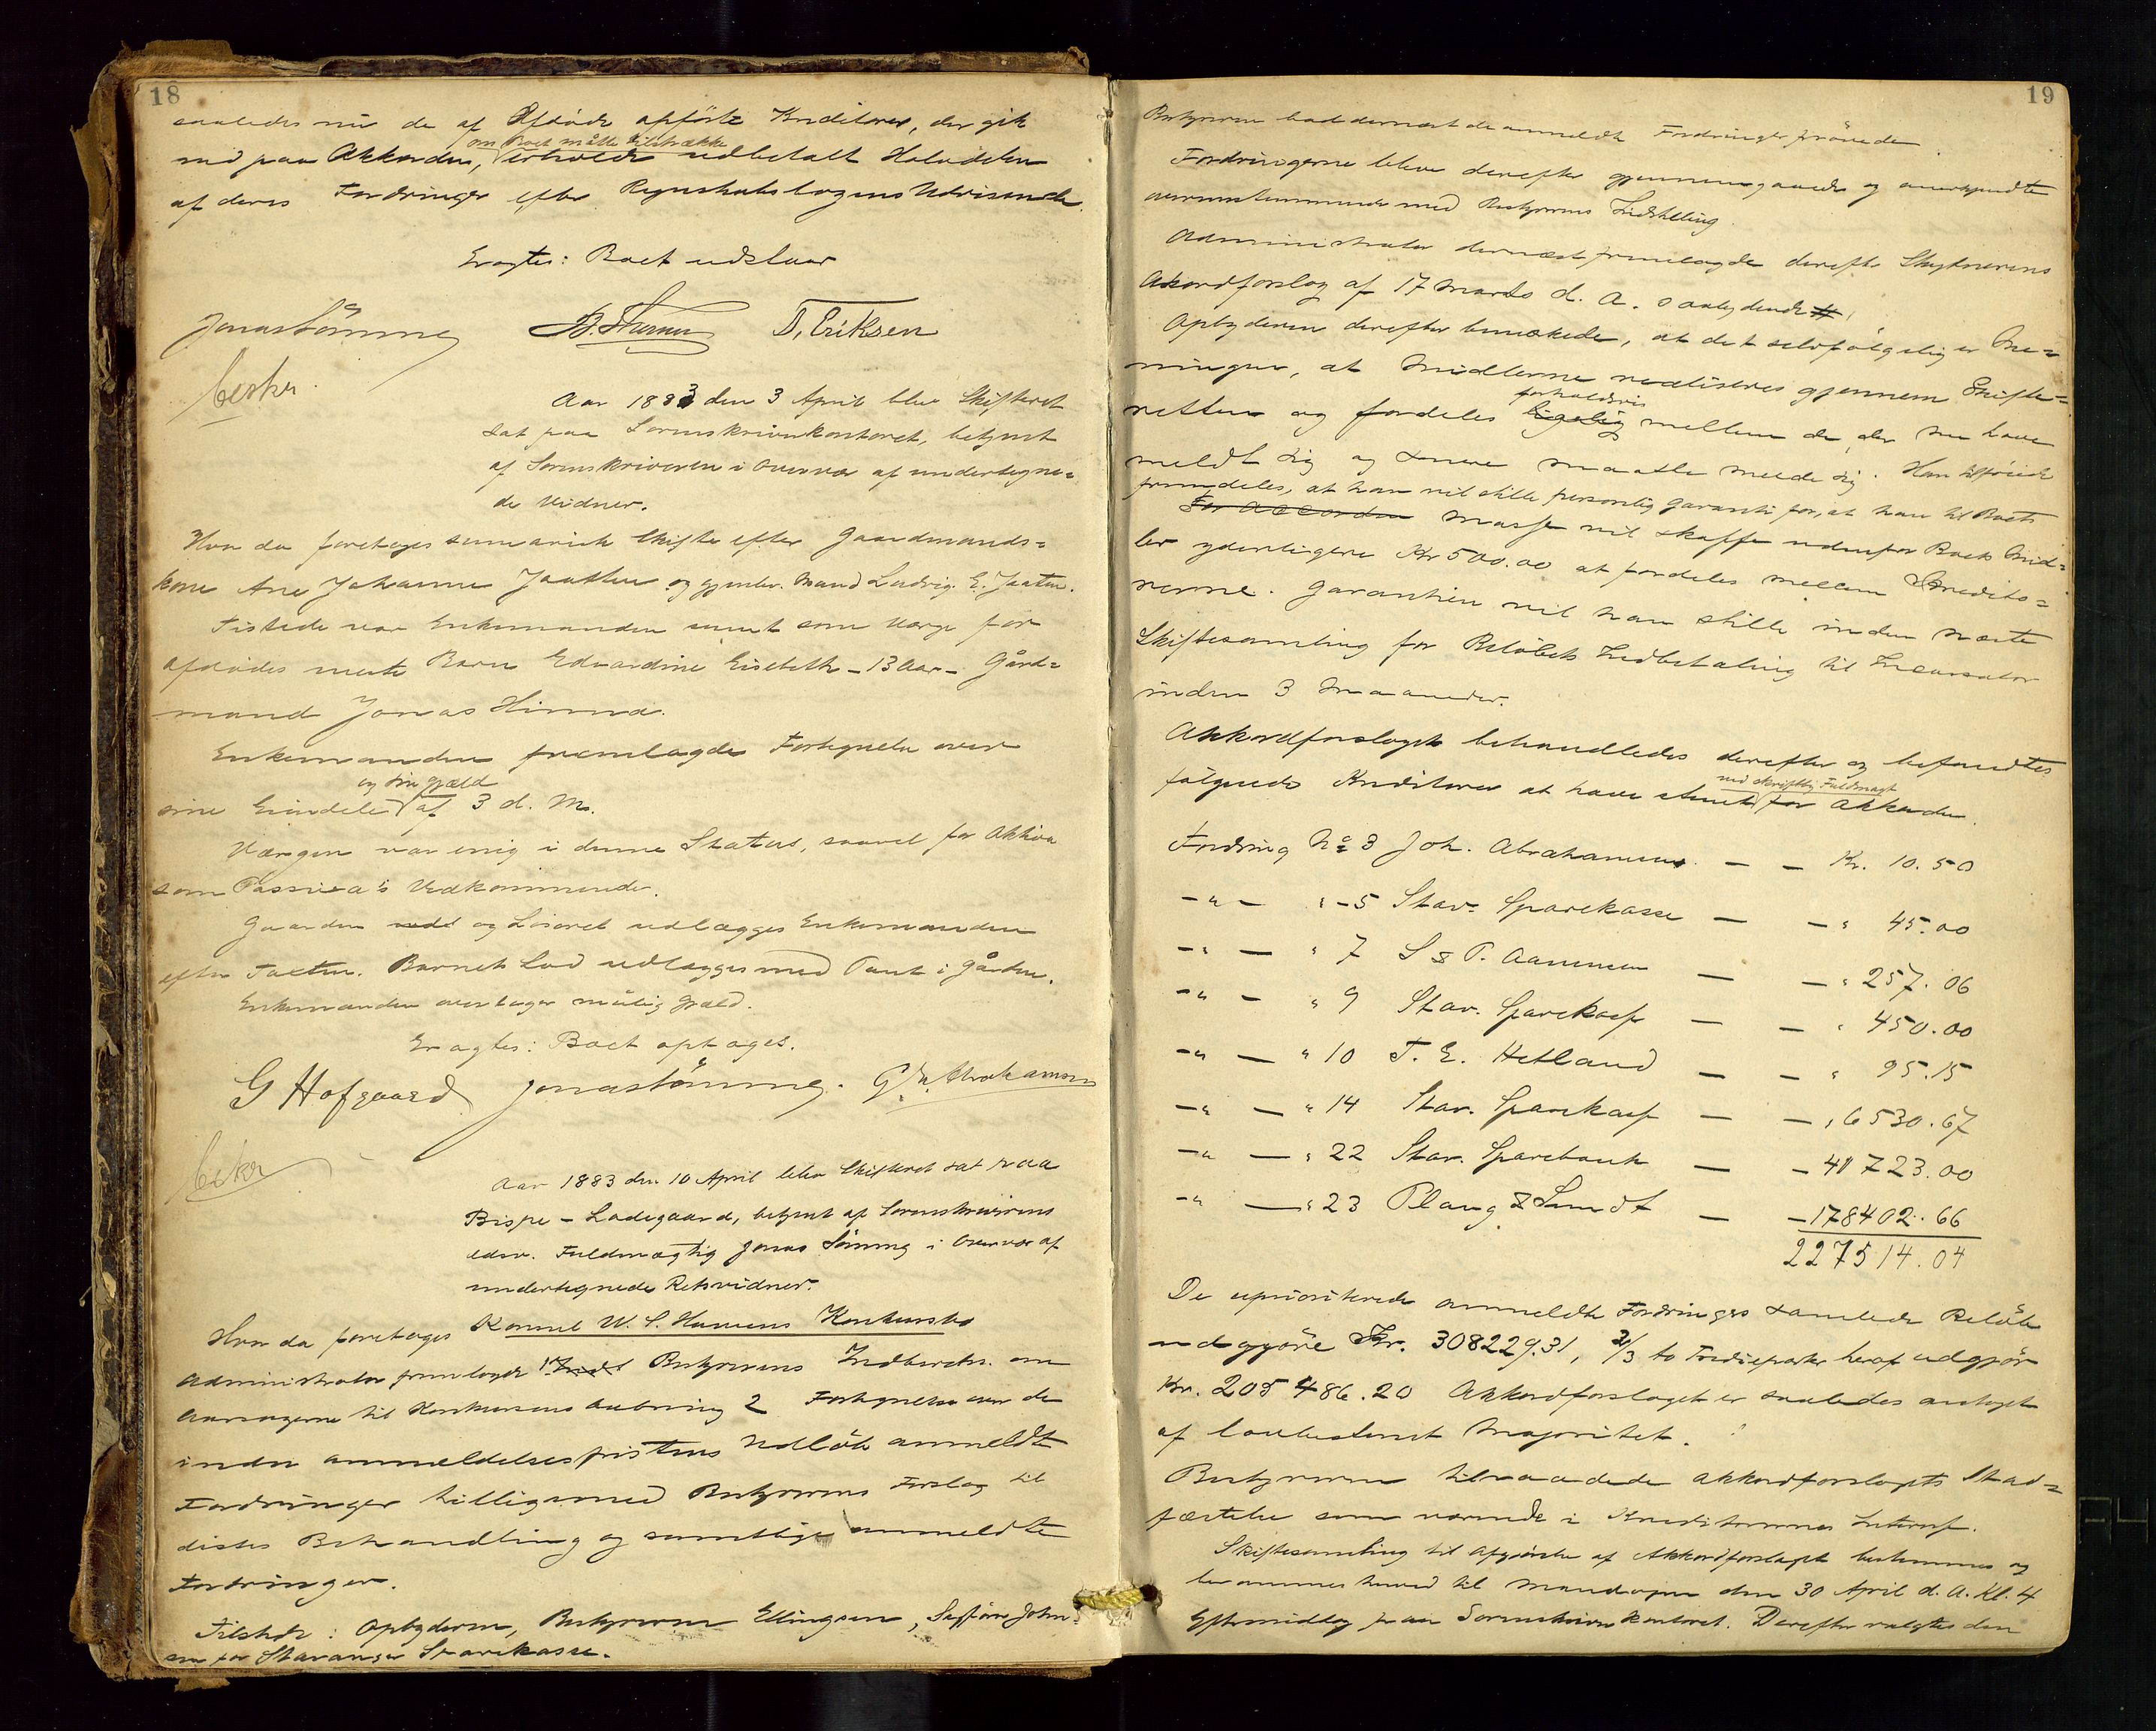 18
saaledes nu de af Afdöde opförte Kreditorer, der gik
om Boet måtte tilstrække
ind paa Akkorden, erholde udbetalt Halvdelen
af deres Fordringer efter Regnskabsbogens Udvisende.
Eragtes: Boet udslaar
Jonas Sömme D. Eriksen
Aar 1883 den 3 April blev Skifteret
sat paa Sorenskriverkontoret, betjent
af Sorenskriveren i Overvær af undertegne=
de Vidner.
Hvor da foretoges summarisk Skifte efter Gaardmands=
kone Ane Johanne Jaatten og gjenlev. Mand Ludvig E. Jaatten.
Tilstede var Enkemanden samt som Værge for
afdödes Barn Edvardine Elisebeth - 13 Aar - Gård=
mand Jonas Hinna.
Enkemanden fremlagde Fortegnelse over
og sin Gjæld
sine Eiendele af 3 d. M.
Værgen var enig i denne Status, saavel for Aktiva
som Passiva's Vedkommende.
Gaarden og Lösöret udlægges Enkemanden
efter Taxten. Barnets Lod udlægges med Pant i Gården.
Enkemanden overtager mulig Gjæld.
Eragtes: Boet optages.
G Hofgaard Jonas Sömme. Abrahamsen
Aar 1883 den 10 April blev Skifteret sat paa
Bispe-Ladegaard, betjent af Sorenskriverens
edsv. Fuldmægtig Jonas Sömme i Overvær af
undertegnede Retsvidner.
Hvor da foretoges Konsul W. S. Hansens Konkursbo
Administrator fremlagde 1 Bestyrerens Indberetn. om
Aarsagerne til Konkursens Aabning 2 Fortegnelse over de
inden Anmeldelsesfristens Udlöb anmeldte
Fordringer tilligemed Bestyrerens Forslag til
disses Behandling og samtlige anmeldte
Fordringer.
Tilstede: Opbyderen, Bestyreren Ellingsen, Sagförer John=
sen for Stavanger Sparekasse.
19
Bestyreren bad dernæst de anmeldte Fordringer prövede
Fordringerne bleve derefter gjennemgaaede og anerkjendte
overensstemmende med Bestyrerens Indstilling.
Administrator dernæst fremlagde derefter Skyldnerens
Akordforslag af 17 Marts d. A. saalydende #
Opbyderen derefter bemærkede, at det selvfölgelig er Me=
ningen, at Midlerne realiseres gjennem Skifte=
forholdsvis
retten og fordeles ligelig mellem de, der nu have
meldt sig og senere maatte melde sig. Han tilföiede
fremdeles, at han vil stille personlig Garanti for, at han til Boets
For Accorden Masse vil skaffe udenfor Boets Mid=
ler yderligere Kr 500.00 at fordeles mellem Kredito=
rerne. Garantien vil han stille inden næste
Skiftesamling for Belöbets Indbetaling til Incassator
inden 3 Maaneder.
Akkordforslaget behandledes derefter og befandtes
ved skriftlig Fuldmagt
fölgende Kreditorer at have stemt for Akkorden.
Fordring No 3 Joh. Abrahamsen — — Kr. 10.50
-"- " -5 Stav. Sparekasse — — " 45.00
-"- " 7 S & P. Aanensen — — " 257.06
-"- " 9 Stav. Sparekasse — — " 450.00
-"- " 10 T. E. Hetland — — " 95.15
-"- " 14 Stav. Sparekasse — — " 6530.67
-"- " 22 Stav. Sparebank — - 41723.00
-"- " 23 Plaug & Sundt — -178402.66
227514.04
De uprioriterede anmeldte Fordringers samlede Belöb
udgjöre Kr. 308229.31, 2/3 to Trediepartes heraf udgjör
Kr. 205486.20 Akkordforslaget er saaledes antaget
af lovbestemt Majoritet.
Bestyreren tilraadede Akkordforslagets Stad=
fæstelse som værende i Kreditorernes Interesse.
Skiftesamling til Afgjörelse af Akkordforslaget bestemmes og
berammes herved til Mandagen den 30 April d. A. Kl. 4
Eftermiddag paa Sorenskriverkontoret. Derefter valgtes den